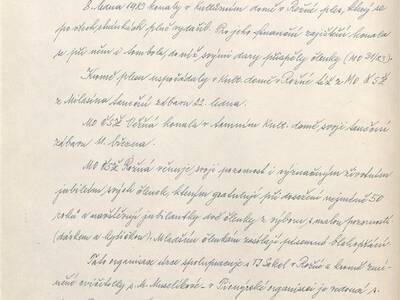 8. ledna 1983 konaly v kulturním domě v Rožné ples, který se
po všech stránkách plně vydařil. Pro jeho finanční zajištění konala
se při něm i tombola, do níž svými dary přispěly členky (MO
Kromě plesu uspořádaly v kult. domě v Rožné též z MO ČSŽ
z Milasína taneční zábavu 22. ledna.
MO ČSŽ Věžná konala v tamním kult. domě svoji taneční
zábavu 11. března.
MO ČSŽ Rožná věnuje svoji pozornost i význačným životním
jubileím svých členek, kterým gratulují při dosažení nejméně 50
roků a navštěvují jubilantky dvě členky z výboru, s malou pozorností
(dárkem a kytičkou). Mladším členkám zasílají písemné blahopřání.
Tato organisace úzce spolupracuje s TJ Sokol v Rožné a kromě zmí-
něné cvičitelky s. M. v Pionýrské organisaci je vedoucí s.